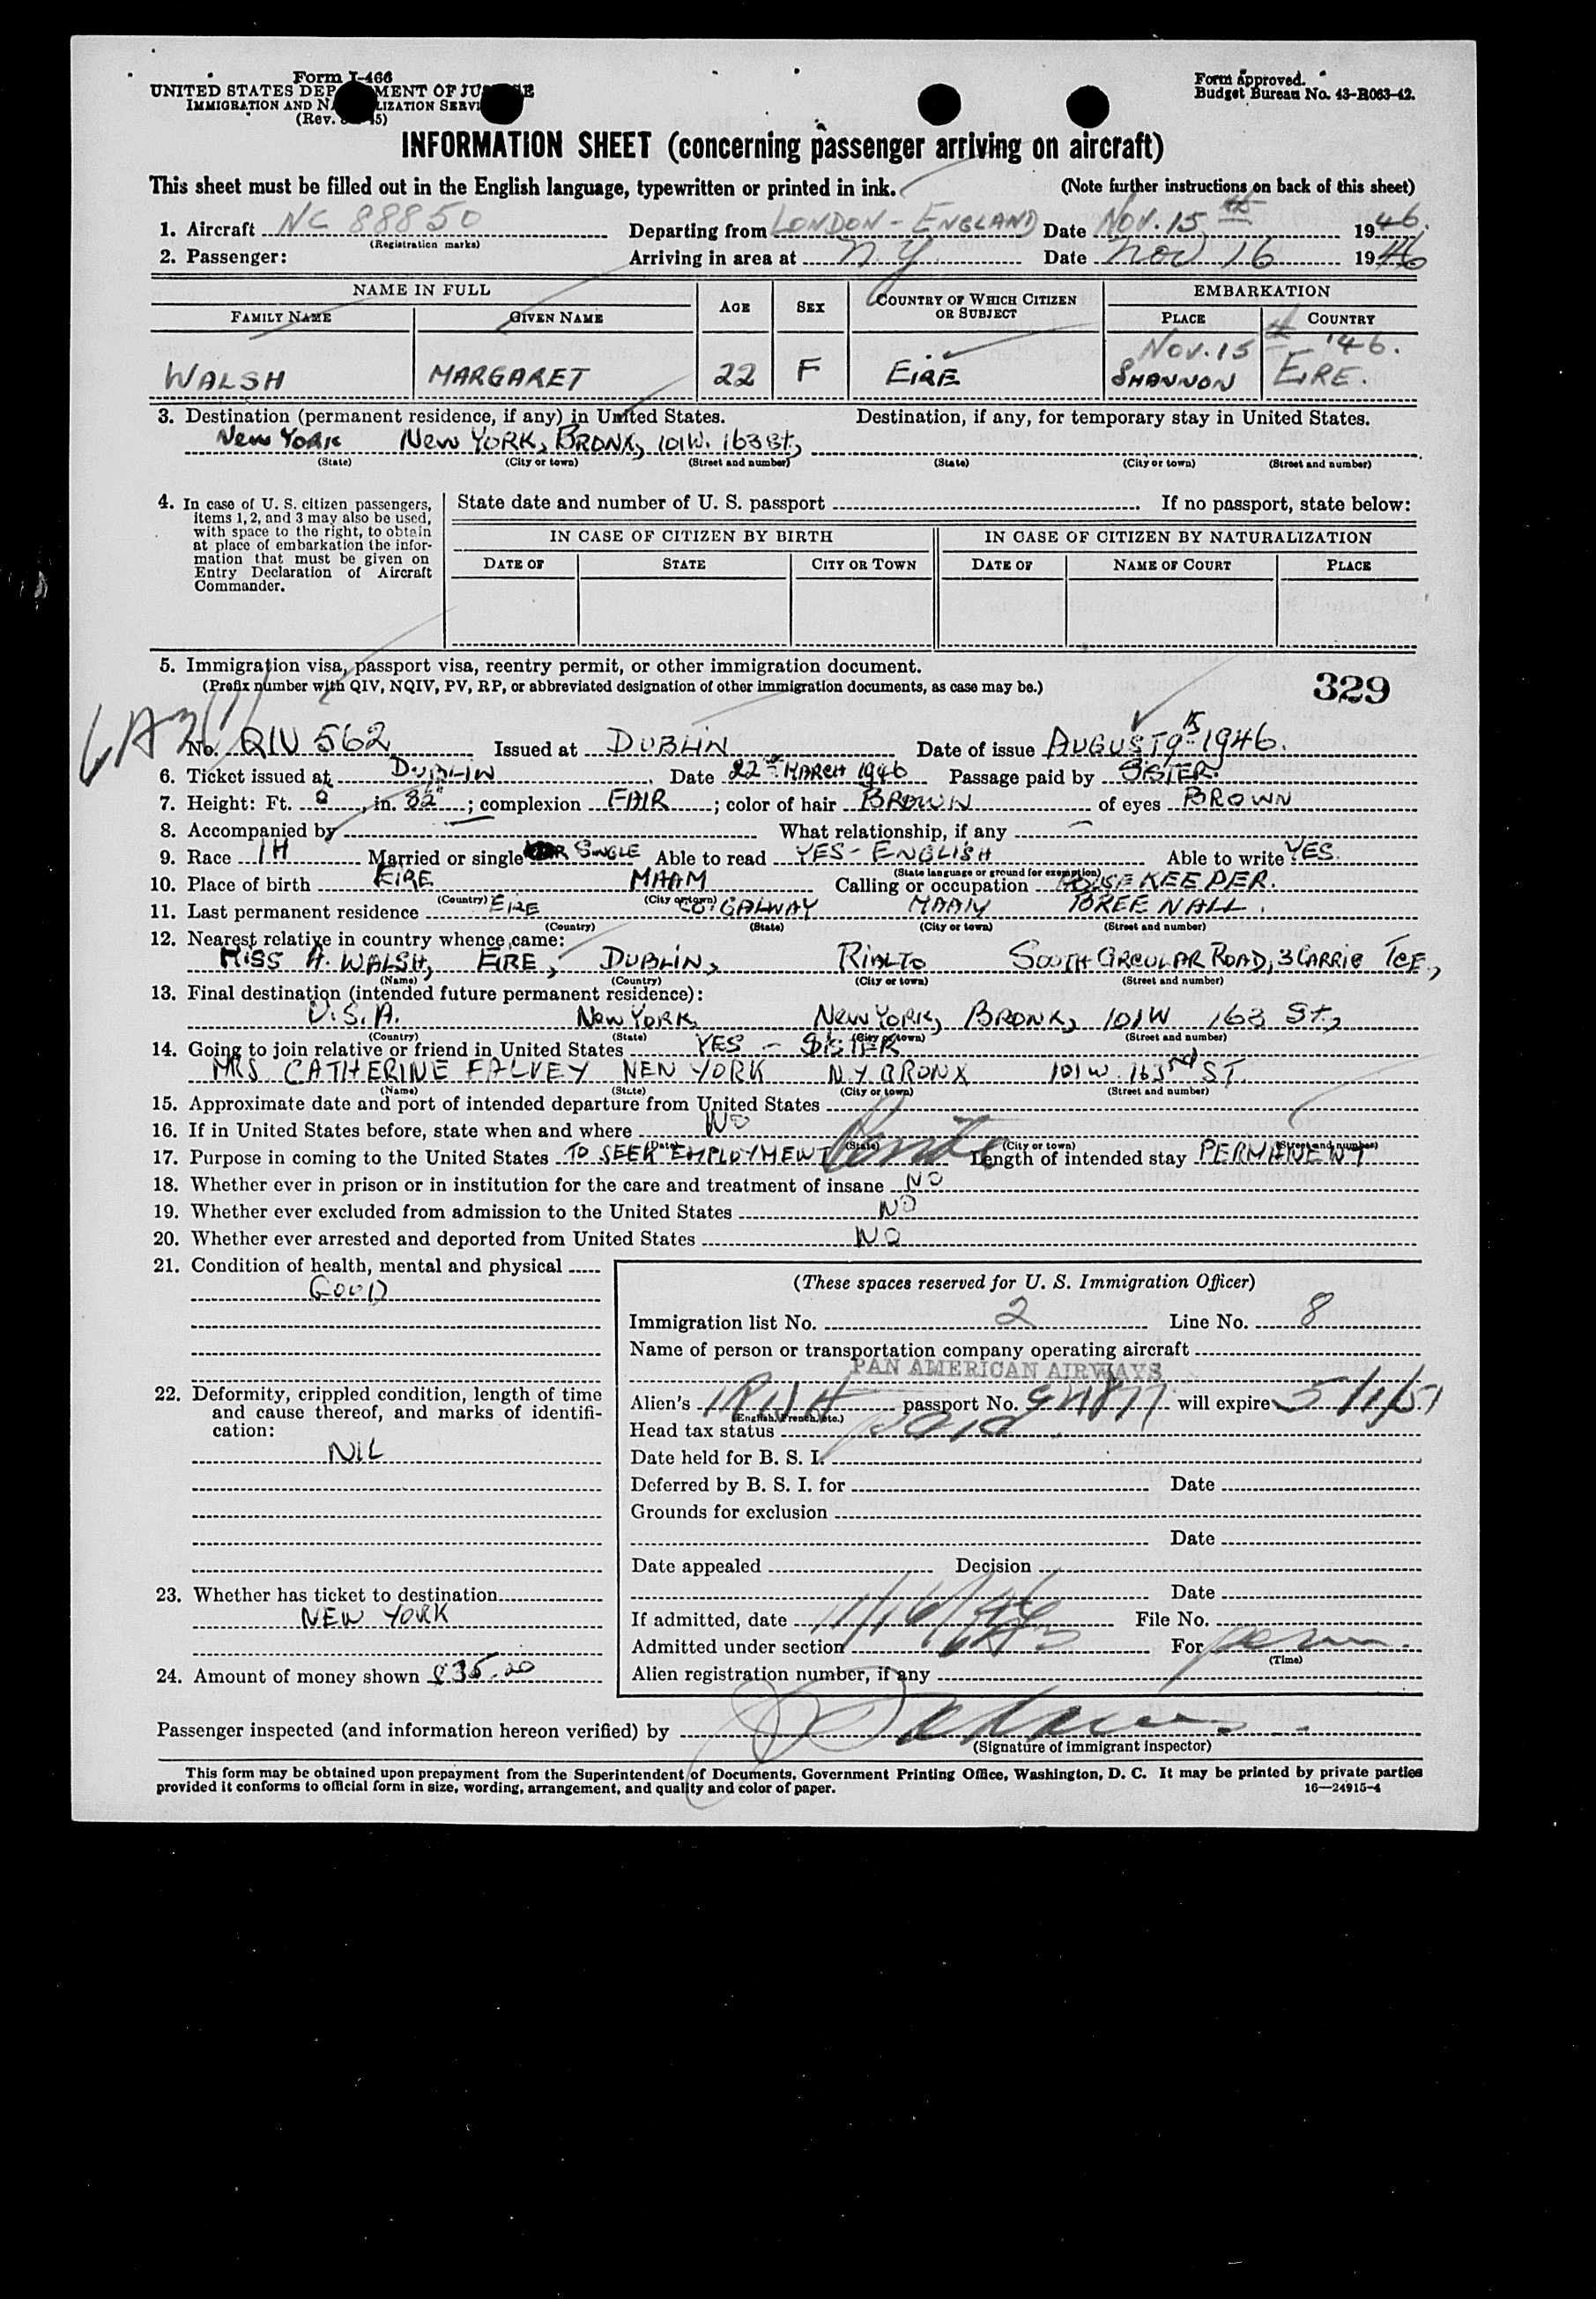 Form I-466
UNITED STATES DEP MENT OF JU E
IMMIGRATION AND N LIZATION SERVI
(Rev. 45)
Form approved.
Budget Bureau No. 43-R063-42.
INFORMATION SHEET (concerning passenger arriving on aircraft)
This sheet must be filled out in the English language, typewritten or printed in ink. (Note further instructions on back of this sheet)
1. Aircraft NC 88850 Departing from LONDON - ENGLAND Date NOV. 15th 1946.
(Registration marks)
2. Passenger: Arriving in area at N.Y. Date Nov 16 1946
NAME IN FULL AGE SEX COUNTRY OF WHICH CITIZEN OR SUBJECT EMBARKATION
FAMILY NAME GIVEN NAME PLACE COUNTRY
Nov. 15th '46.
WALSH MARGARET 22 F EIRE SHANNON EIRE.
3. Destination (permanent residence, if any) in United States. Destination, if any, for temporary stay in United States.
New York New YORK, BRONX, 101 W. 163 St,
(State) (City or town) (Street and number) (State) (City or town) (Street and number)
4. In case of U. S. citizen passengers, items 1, 2, and 3 may also be used, with space to the right, to obtain at place of embarkation the information that must be given on Entry Declaration of Aircraft Commander.
State date and number of U. S. passport If no passport, state below:
IN CASE OF CITIZEN BY BIRTH IN CASE OF CITIZEN BY NATURALIZATION
DATE OF STATE CITY OR TOWN DATE OF NAME OF COURT PLACE
5. Immigration visa, passport visa, reentry permit, or other immigration document.
(Prefix number with QIV, NQIV, PV, RP, or abbreviated designation of other immigration documents, as case may be.)
329
No. QIV 562 Issued at DUBLIN Date of issue AUGUST 9th 1946.
6. Ticket issued at DUBLIN Date 22nd MARCH 1946 Passage paid by SISTER.
7. Height: Ft. , in. ; complexion FAIR ; color of hair BROWN of eyes BROWN
8. Accompanied by What relationship, if any
9. Race IH Married or single SINGLE Able to read YES - ENGLISH Able to write YES.
(State language or ground for exemption)
10. Place of birth EIRE MAAM Calling or occupation HOUSE KEEPER.
(Country) (City or town)
11. Last permanent residence EIRE CO. GALWAY MAAM BREENALL.
(Country) (State) (City or town) (Street and number)
12. Nearest relative in country whence came:
MISS A. WALSH, EIRE, DUBLIN, RIALTO SOUTH CIRCULAR ROAD, 3 CARRIG TCE,
(Name) (Country) (City or town) (Street and number)
13. Final destination (intended future permanent residence):
U.S.A. New YORK, New YORK, BRONX, 101 W 163 St,
(Country) (State) (City or town) (Street and number)
14. Going to join relative or friend in United States YES - SISTER
MRS CATHERINE FALVEY NEW YORK N.Y. BRONX 101 W. 163rd ST.
(Name) (State) (City or town) (Street and number)
15. Approximate date and port of intended departure from United States
16. If in United States before, state when and where NO
(Date) (State) (City or town) (Street and number)
17. Purpose in coming to the United States TO SEEK EMPLOYMENT Length of intended stay PERMANENT
18. Whether ever in prison or in institution for the care and treatment of insane NO
19. Whether ever excluded from admission to the United States NO
20. Whether ever arrested and deported from United States NO
21. Condition of health, mental and physical
GOOD
22. Deformity, crippled condition, length of time and cause thereof, and marks of identification:
NIL
23. Whether has ticket to destination
NEW YORK
24. Amount of money shown
(These spaces reserved for U. S. Immigration Officer)
Immigration list No. 2 Line No. 8
Name of person or transportation company operating aircraft
PAN AMERICAN AIRWAYS
Alien's IRISH passport No. will expire 5/1/51
(English, French, etc.)
Head tax status paid
Date held for B. S. I.
Deferred by B. S. I. for Date
Grounds for exclusion
Date
Date appealed Decision
Date
If admitted, date 11/16/46 File No.
Admitted under section For perm.
(Time)
Alien registration number, if any
Passenger inspected (and information hereon verified) by
(Signature of immigrant inspector)
This form may be obtained upon prepayment from the Superintendent of Documents, Government Printing Office, Washington, D. C. It may be printed by private parties
provided it conforms to official form in size, wording, arrangement, and quality and color of paper. 16—24915-4